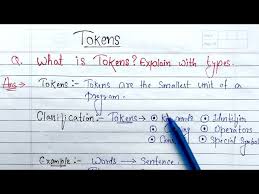 Tokens
Q. What is Tokens? Explain with types.
Ans → Tokens :- Tokens are the smallest unit of a
program.
Clarification:- Tokens → Keywords Identifier
Operators
Special Symbol
Example:- Words → Sentence.